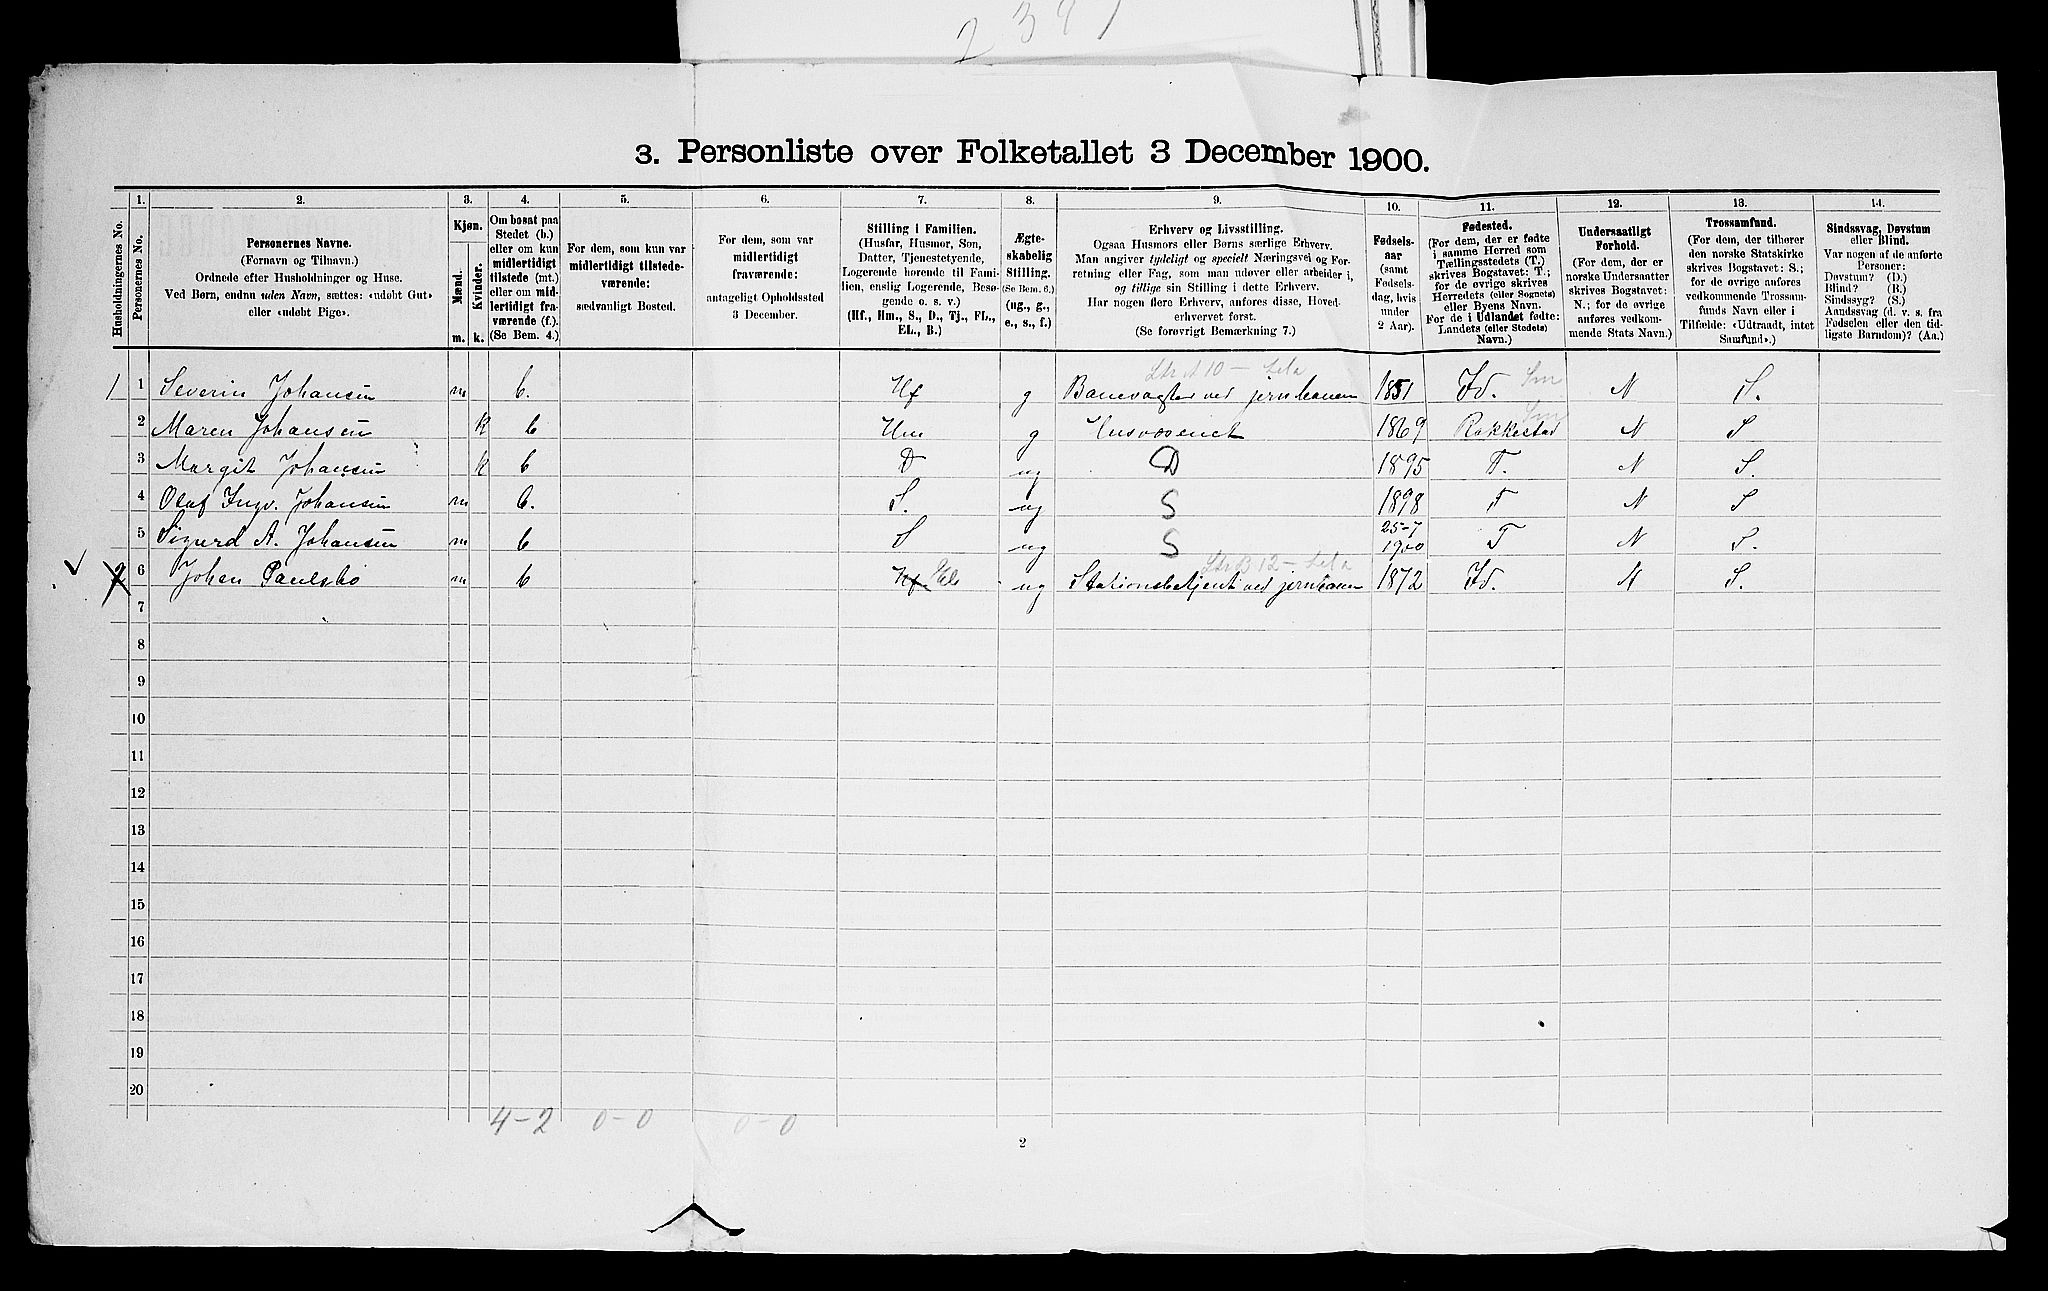 2397
3. Personliste over Folketallet 3 December 1900.
Husholdningernes No.
1.
Personernes No.
2.
Personernes Navne.
(Fornavn og Tilnavn.)
Ordnede efter Husholdninger og Huse.
Ved Børn, endnu uden Navn, sættes: «udøbt Gut»
eller «udøbt Pige».
3.
Kjøn.
Mænd.
Kvinder.
m. k.
4.
Om bosat paa
Stedet (b.)
eller om kun
midlertidigt
tilstede (mt.)
eller om mid-
lertidigt fra-
værende (f.).
(Se Bem. 4.)
5.
For dem, som kun var
midlertidigt tilstede-
værende:
sædvanligt Bosted.
6.
For dem, som var
midlertidigt
fraværende:
antageligt Opholdssted
3 December.
7.
Stilling i Familien.
(Husfar, Husmor, Søn,
Datter, Tjenestetyende,
Logerende hørende til Fami-
lien, enslig Logerende, Besø-
gende o. s. v.)
(Hf., Hm., S., D., Tj., FL.,
EL., B.)
8.
Ægte-
skabelig
Stilling.
(Se Bem. 6.)
(ug., g.,
e., s., f.)
9.
Erhverv og Livsstilling.
Ogsaa Husmors eller Børns særlige Erhverv.
Man angiver tydeligt og specielt Næringsvei og For-
retning eller Fag, som man udøver eller arbeider i,
og tillige sin Stilling i dette Erhverv.
Har nogen flere Erhverv, anføres disse, Hoved-
erhvervet først.
(Se forøvrigt Bemærkning 7.)
10.
Fødsels-
aar
(samt
Fødsels-
dag, hvis
under
2 Aar).
11.
Fødested.
(For dem, der er fødte
i samme Herred som
Tællingsstedets (T.)
skrives Bogstavet: T.;
for de øvrige skrives
Herredets (eller Sognets)
eller Byens Navn.
For de i Udlandet fødte:
Landets (eller Stedets)
Navn.)
12.
Undersaatligt
Forhold.
(For dem, der er
norske Undersaatter
skrives Bogstavet:
N.; for de øvrige
anføres vedkom-
mende Stats Navn.)
13.
Trossamfund.
(For dem, der tilhører
den norske Statskirke
skrives Bogstavet: S.;
for de øvrige anføres
vedkommende Trossam-
funds Navn eller i
Tilfælde: «Udtraadt, intet
Samfund».)
14.
Sindssvag, Døvstum
eller Blind.
Var nogen af de anførte
Personer:
Døvstum? (D.)
Blind? (B.)
Sindssyg? (S.)
Aandssvag (d. v. s. fra
Fødselen eller den tid-
ligste Barndom)? (Aa.)
1 1 Severin Johansen m b. Hf g Banevogter ved jernbanen 1851 Id. N S.
2 Maren Johansen k b Hm g Husvæsenet 1869 Rakkestad N S
3 Margit Johansen k b D ug D 1895 T. N S.
4 Olaf Ingv. Johansen m b. S. ug S 1898 T N S
5 Sigurd A. Johansen m b S ug S 25-7 1900 T N S.
2 6 Johan Paulsbo m b Hf ug Stationsbetjent ved jernbanen 1872 Id. N S.
7
8
9
10
11
12
13
14
15
16
17
18
19
20
4-2 0-0 0-0
2